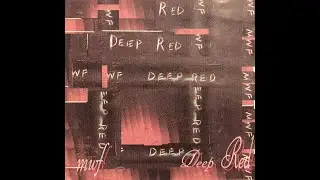 RED
DEEP RED
WF WF DEEP RED
DEEP RED
DEEP
MWF
MWF
MWF
mwf Deep Red